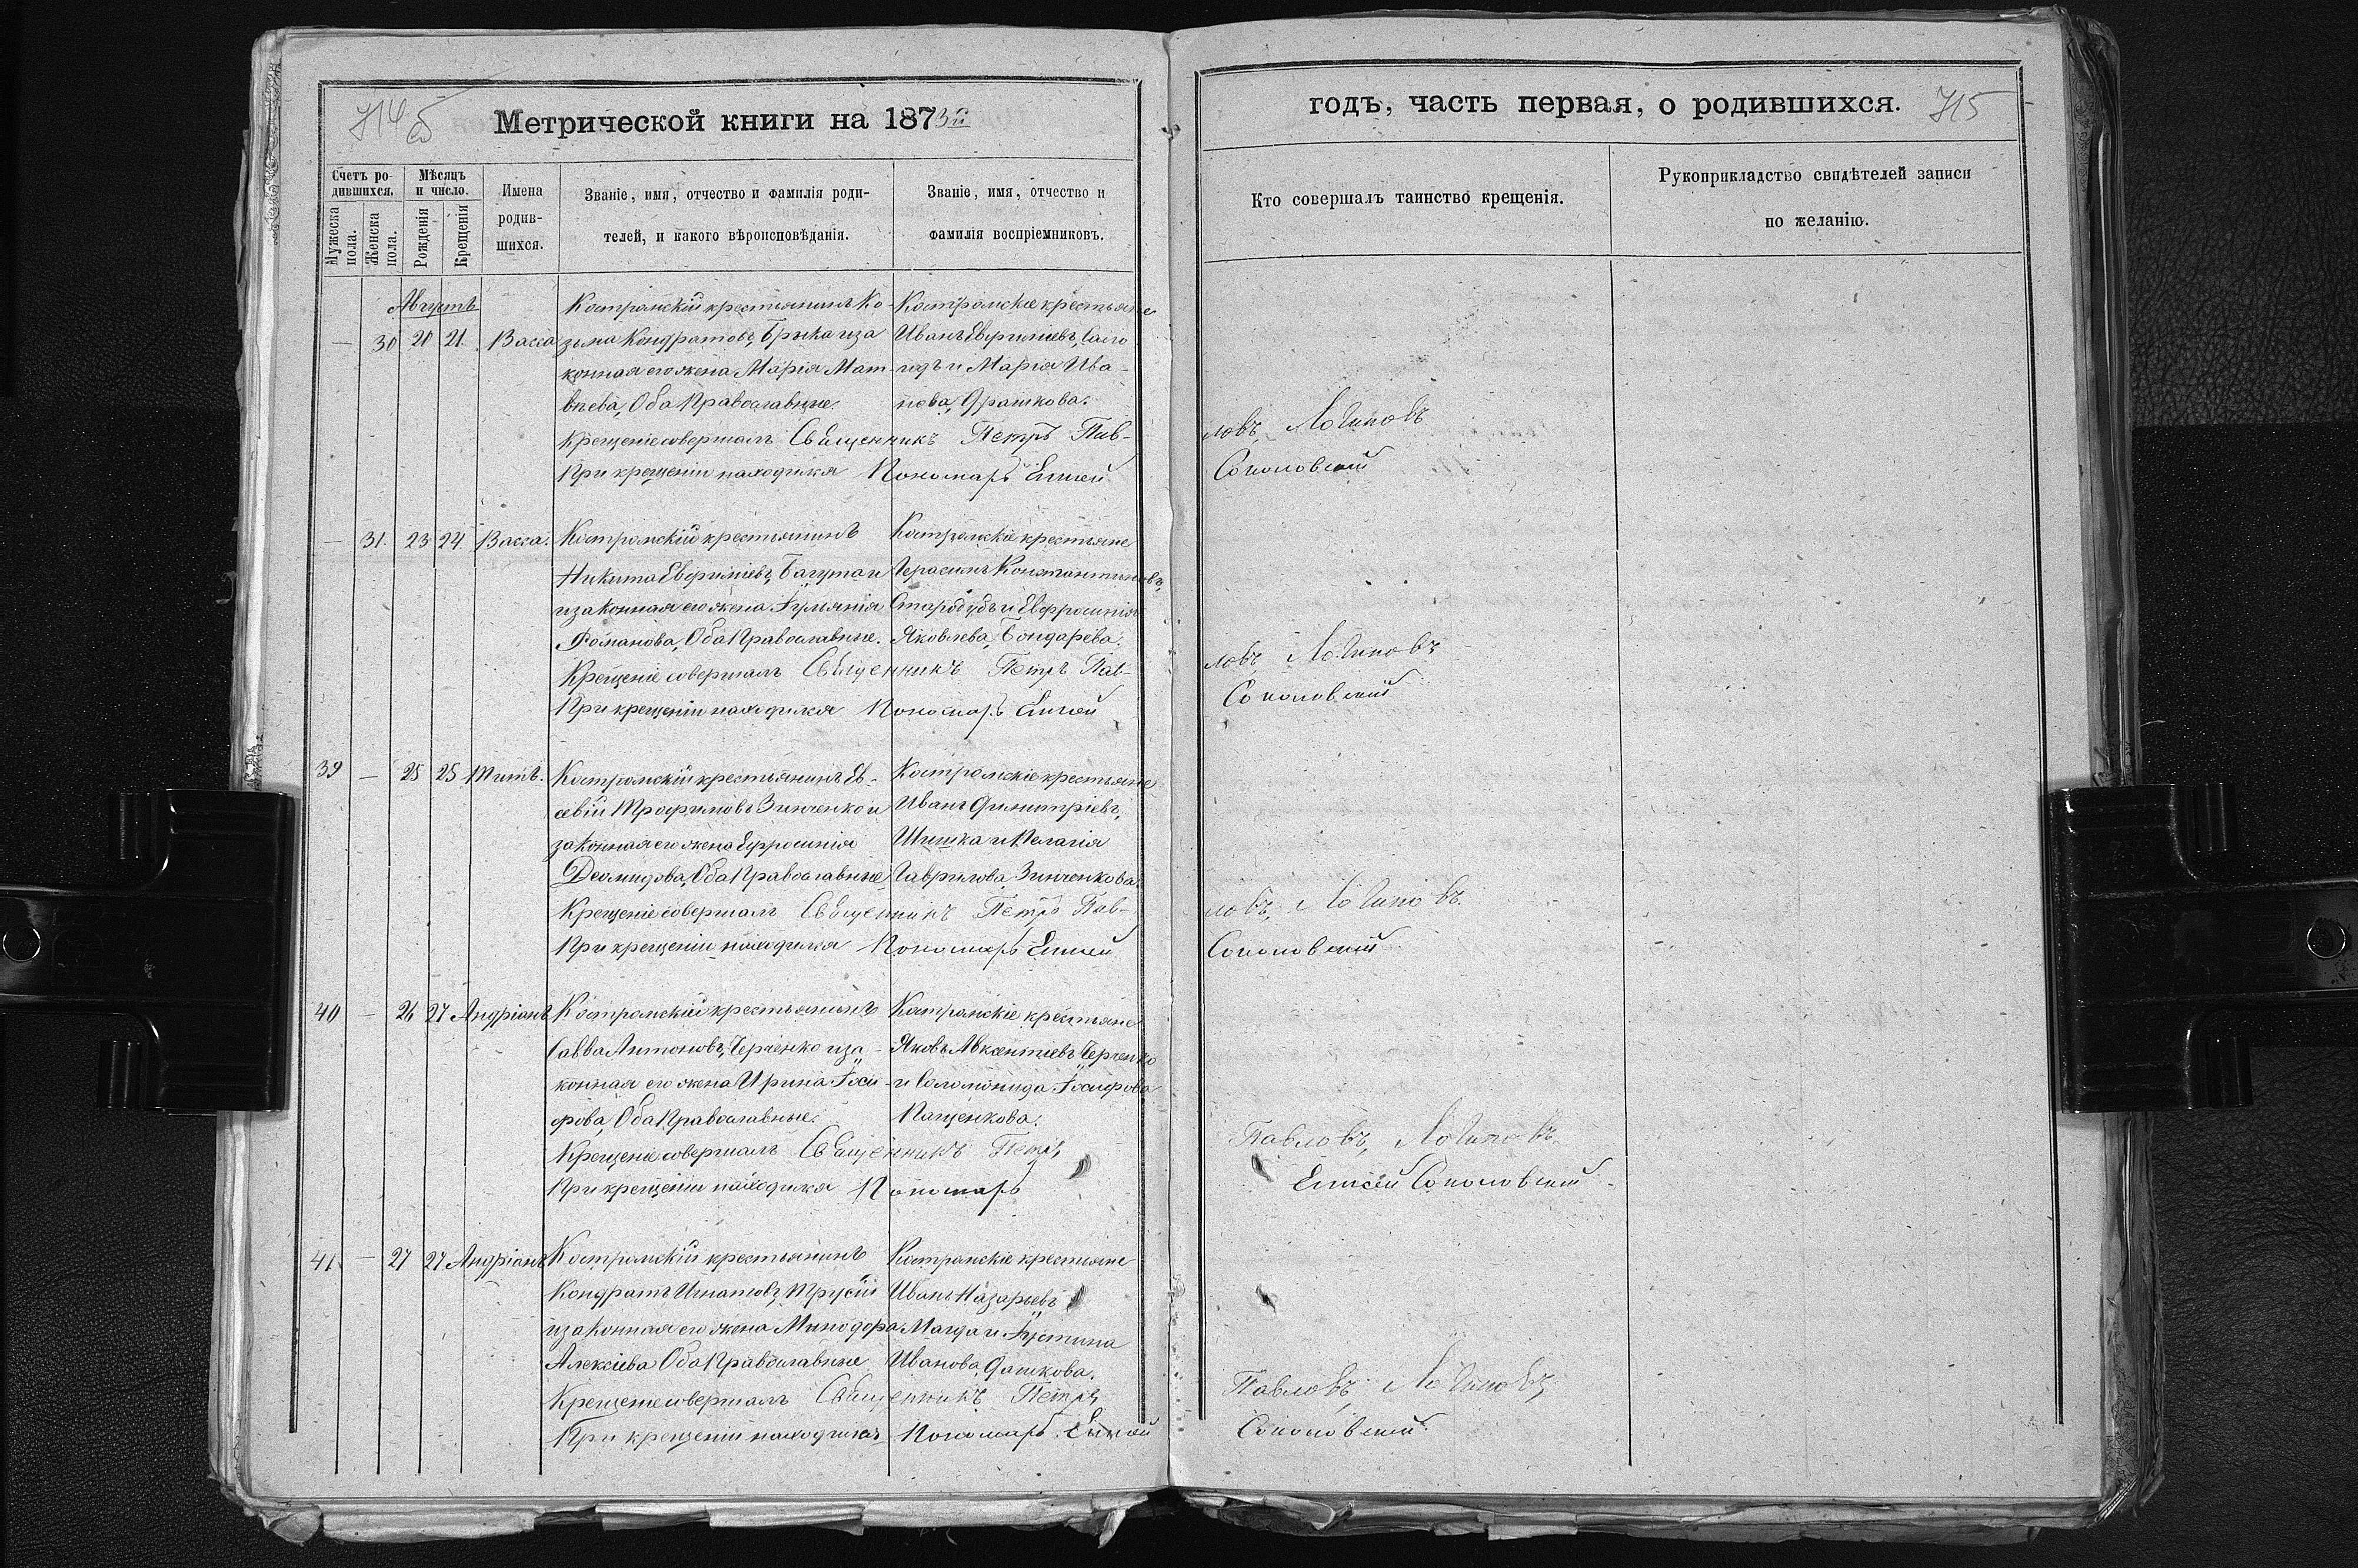 714 об
Метрической книги на 1873й
годъ, часть первая, о родившихся.
715
Счетъ ро-
дившихся.
Мужеска
пола.
Женска
пола.
Мѣсяцъ
и число.
Рожденія
Крещенія
Имена
родив-
шихся.
Званіе, имя, отчество и фамилія роди-
телей, и какого вѣроисповѣданія.
Званіе, имя, отчество и
фамилія воспріемниковъ.
Кто совершалъ таинство крещенія.
Рукоприкладство свидѣтелей записи
по желанію.
Августъ
— 30 20 21 Васса
Костромскій крестьянинъ Ко-
зьма Кондратовъ, Брыка и за
конная его жена Марія Мат-
вѣева, Оба Православные.
Костромскіе крестьяне
Иванъ Евфиміевъ,
и Марія Ива-
нова, Драшкова.
Крещеніе совершалъ Священникъ Петръ Пав-
ловъ Логиновъ
При крещеніи находился Пономарь Елисей
Соколовский
— 31. 23 24. Васса.
Костромскій крестьянинъ
Никита Евфиміевъ, Багута и
и законная его жена Іуліанія
Романова, Оба Православные.
Костромскіе крестьяне
Герасимъ Константиновъ,
Стародубъ и Евфросинія
Яковлева, Бондарева.
Крещеніе совершалъ Священникъ Петръ Пав-
ловъ Логиновъ
При крещеніи находился Пономарь Елисей
Соколовский
39 — 25 25 Титъ.
Костромскій крестьянинъ Ев-
севій Трофимовъ Зинченко и
законная его жена Ефросинія
Деомидова, Оба Православные
Костромскіе крестьяне
Иванъ Димитріевъ,
Шишка и Пелагія
Гаврилова, Зинченкова.
Крещеніе совершалъ Священникъ Петръ Пав-
ловъ, Логиновъ
При крещеніи находился Пономарь Елисей
Соколовский
40 — 26 27 Андріанъ
Костромскій крестьянинъ
Савва Антоновъ, Черченко и за-
конная его жена Ирина Іоси-
фова, Оба Православные.
Костромскіе крестьяне
Яковъ Авксентіевъ Черченко
и Соломонида Іосифова
Пащенкова.
Крещеніе совершалъ Священникъ Петръ
Павловъ, Логиновъ
При крещеніи находился Пономарь
Елисей Соколовский
41. — 27 27 Андріанъ
Костромскій крестьянинъ
Кондратъ Игнатовъ, Трусій
и законная его жена Минодора
Алексіева Оба Православные
Костромскіе крестьяне
Иванъ Назарьевъ
Магда и Іустина
Иванова, Дашкова.
Крещеніе совершалъ Священникъ Петръ
Павловъ, Логиновъ
При крещеніи находился Пономарь Елисей
Соколовский